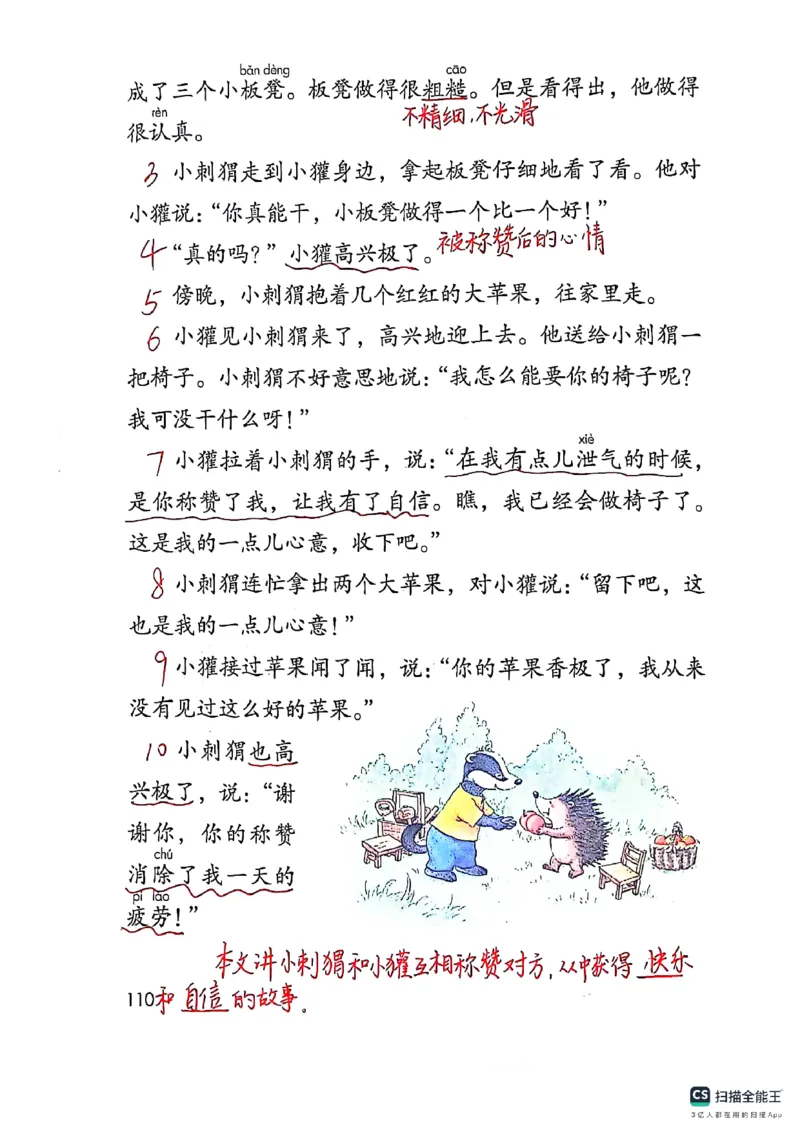 bǎn dèng cāo
成了三个小板凳。板凳做得很粗糙。但是看得出，他做得
rèn 不精细，不光滑
很认真。
3 小刺猬走到小獾身边，拿起板凳仔细地看了看。他对
小獾说：“你真能干，小板凳做得一个比一个好！”
4 “真的吗？”小獾高兴极了。被称赞后的心情
5 傍晚，小刺猬抱着几个红红的大苹果，往家里走。
6 小獾见小刺猬来了，高兴地迎上去。他送给小刺猬一
把椅子。小刺猬不好意思地说：“我怎么能要你的椅子呢？
我可没干什么呀！”
xiè
7 小獾拉着小刺猬的手，说：“在我有点儿泄气的时候，
是你称赞了我，让我有了自信。瞧，我已经会做椅子了。
这是我的一点儿心意，收下吧。”
8 小刺猬连忙拿出两个大苹果，对小獾说：“留下吧，这
也是我的一点儿心意！”
9 小獾接过苹果闻了闻，说：“你的苹果香极了，我从来
没有见过这么好的苹果。”
10 小刺猬也高
兴极了，说：“谢
谢你，你的称赞
chú
消除了我一天的
pí láo
疲劳！”
本文讲小刺猬和小獾互相称赞对方，从中获得 快乐
110和 自信 的故事。
CS 扫描全能王
3亿人都在用的扫描App